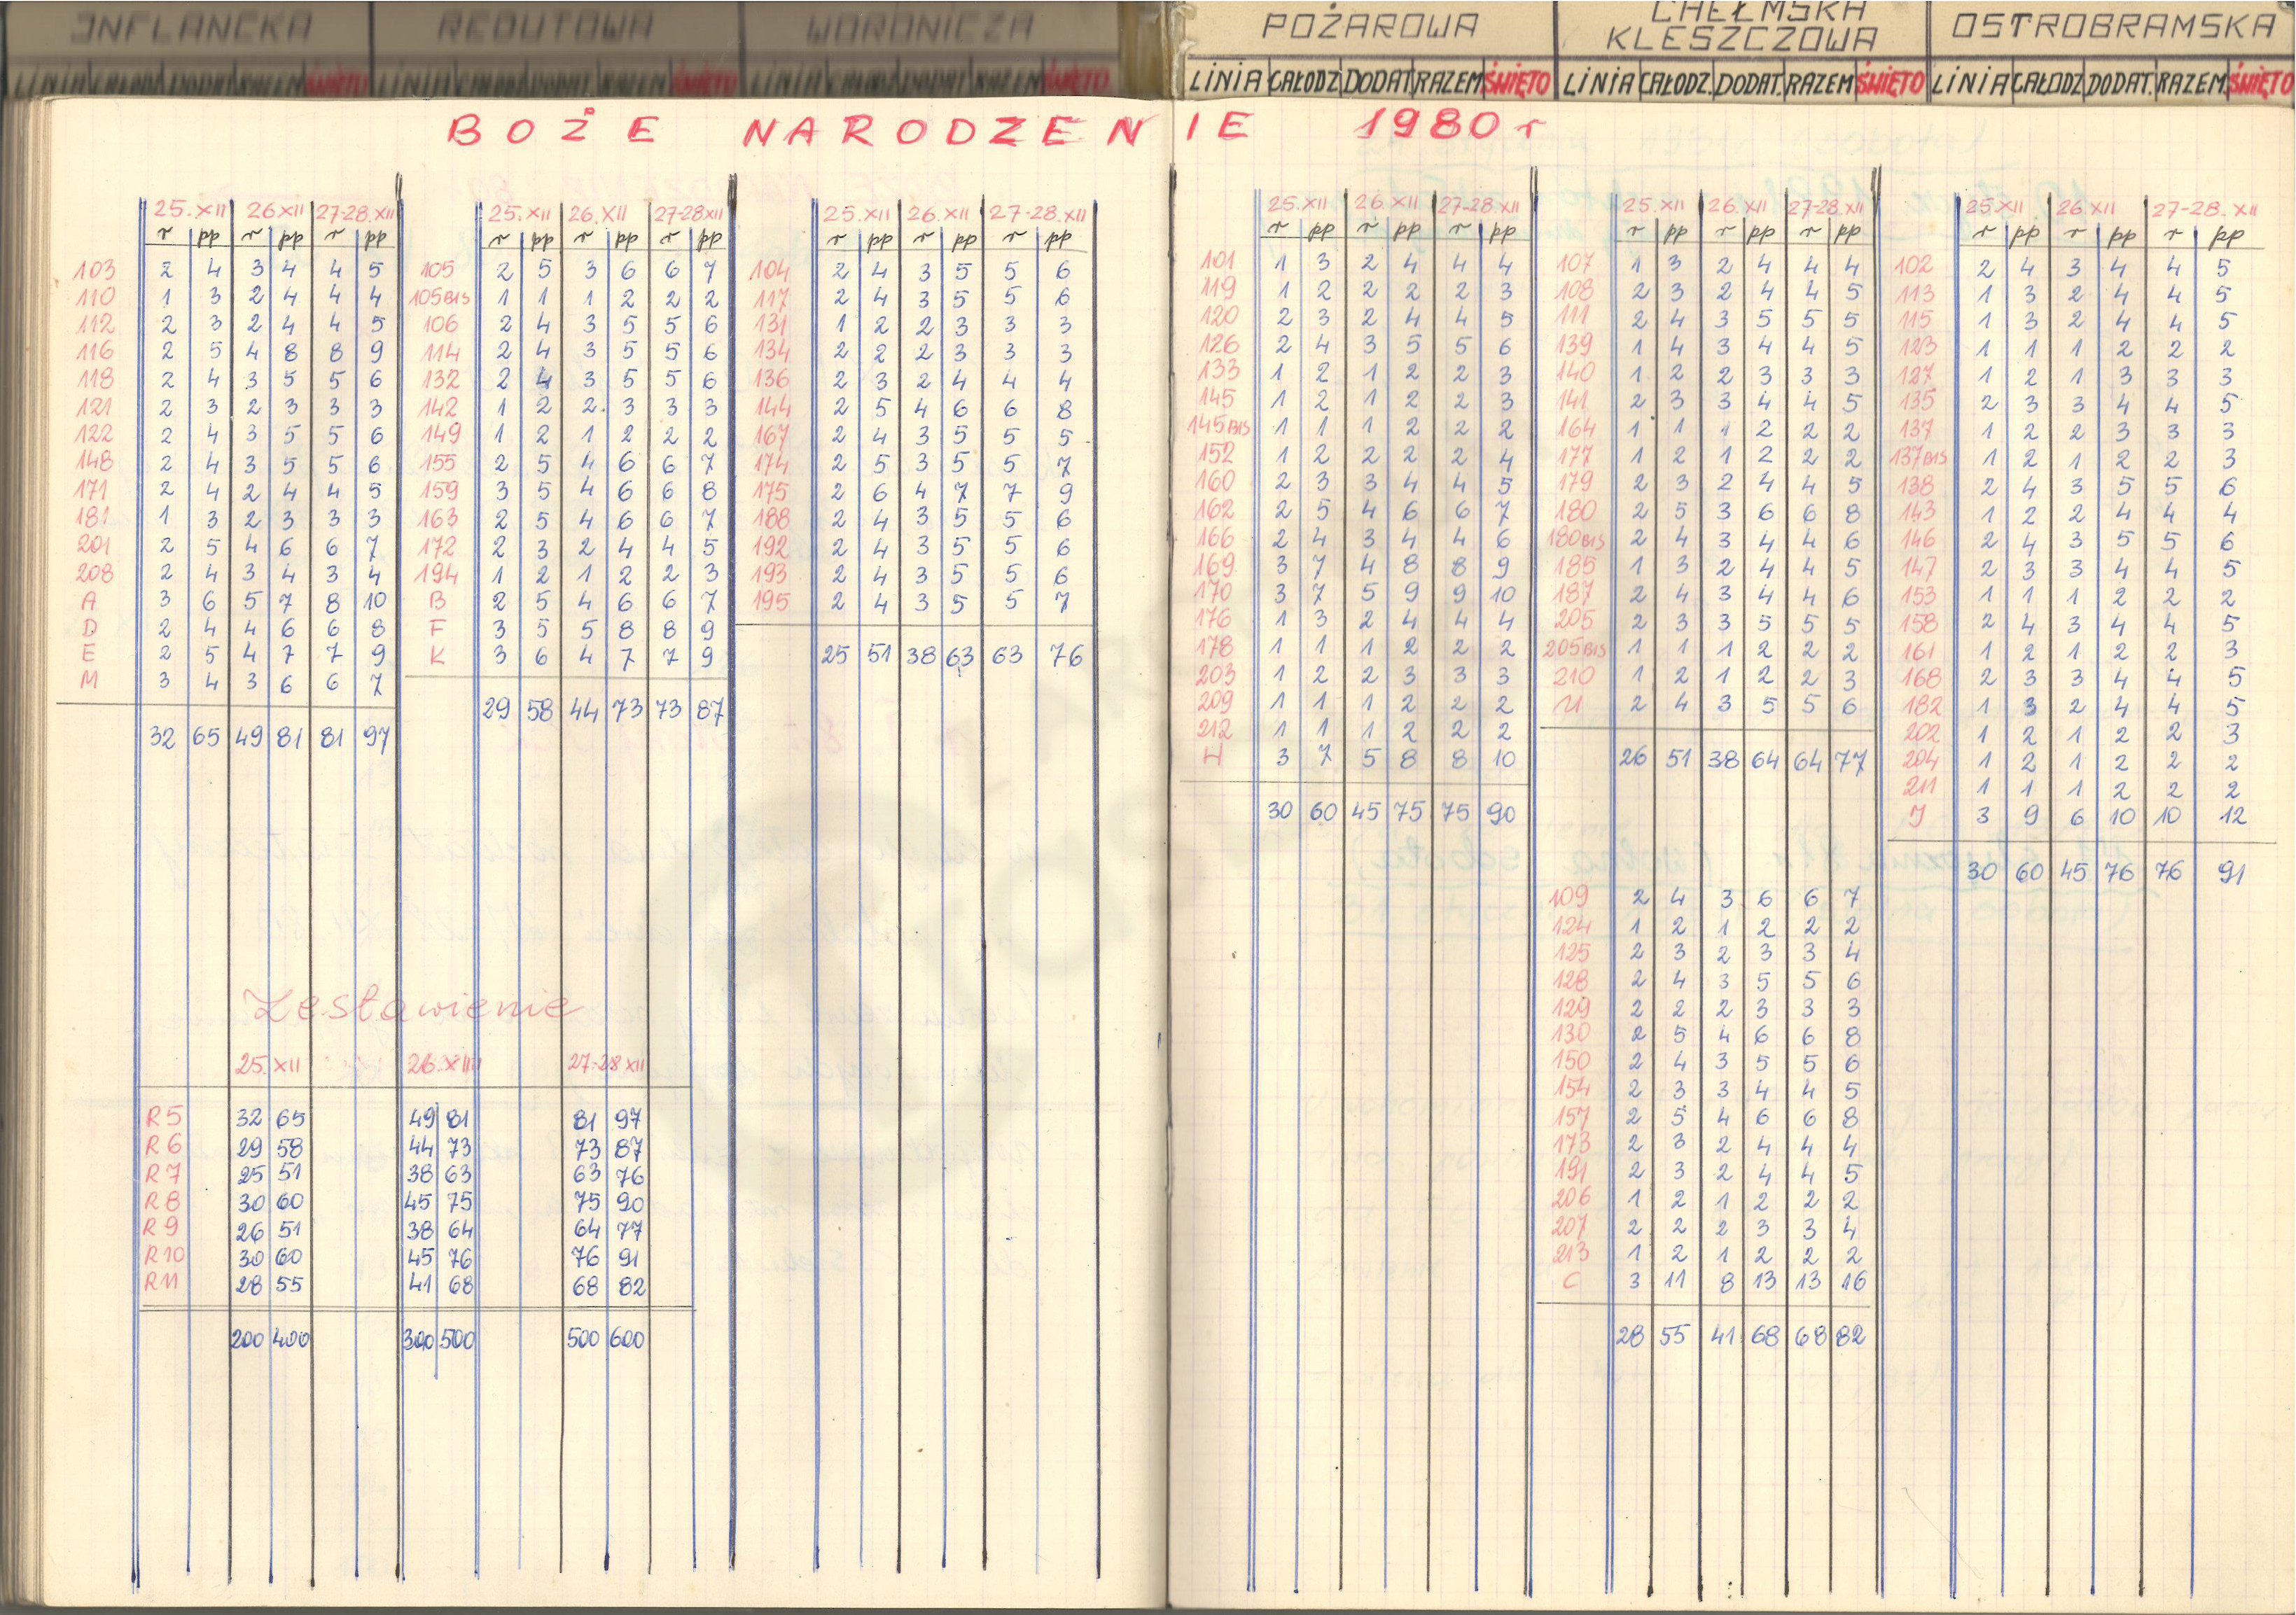 INFLANCKA REDUTOWA WORONICZA POŻAROWA CHEŁMSKA KLESZCZOWA OSTROBRAMSKA
LINIA CAŁODZ DODAT RAZEM ŚWIĘTO LINIA CAŁODZ DODAT RAZEM ŚWIĘTO LINIA CAŁODZ DODAT RAZEM ŚWIĘTO LINIA CAŁODZ DODAT RAZEM ŚWIĘTO LINIA CAŁODZ. DODAT. RAZEM ŚWIĘTO LINIA CAŁODZ DODAT. RAZEM ŚWIĘTO
BOŻE NARODZENIE 1980 r
25.XII 26 XII 27-28.XII
r pp r pp r pp
103 2 4 3 4 4 5
110 1 3 2 4 4 4
112 2 3 2 4 4 5
116 2 5 4 8 8 9
118 2 4 3 5 5 6
121 2 3 2 3 3 3
122 2 4 3 5 5 6
148 2 4 3 5 5 6
171 2 4 2 4 4 5
181 1 3 2 3 3 3
201 2 5 4 6 6 7
208 2 4 3 4 3 4
A 3 6 5 7 8 10
D 2 4 4 6 6 8
E 2 5 4 7 7 9
M 3 4 3 6 6 7
32 65 49 81 81 97
25.XII 26.XII 27-28XII
r pp r pp r pp
105 2 5 3 6 6 7
105BIS 1 1 1 2 2 2
106 2 4 3 5 5 6
114 2 4 3 5 5 6
132 2 4 3 5 5 6
142 1 2 2. 3 3 3
149 1 2 1 2 2 2
155 2 5 4 6 6 7
159 3 5 4 6 6 8
163 2 5 4 6 6 7
172 2 3 2 4 4 5
194 1 2 1 2 2 3
B 2 5 4 6 6 7
F 3 5 5 8 8 9
K 3 6 4 7 7 9
29 58 44 73 73 87
25.XII 26.XII 27-28.XII
r pp r pp r pp
104 2 4 3 5 5 6
117 2 4 3 5 5 6
131 1 2 2 3 3 3
134 2 2 2 3 3 3
136 2 3 2 4 4 4
144 2 5 4 6 6 8
167 2 4 3 5 5 5
174 2 5 3 5 5 7
175 2 6 4 7 7 9
188 2 4 3 5 5 6
192 2 4 3 5 5 6
193 2 4 3 5 5 6
195 2 4 3 5 5 7
25 51 38 63 63 76
Zestawienie
25.XII 26.XII 27-28 XII
R5 32 65 49 81 81 97
R6 29 58 44 73 73 87
R7 25 51 38 63 63 76
R8 30 60 45 75 75 90
R9 26 51 38 64 64 77
R10 30 60 45 76 76 91
R11 28 55 41 68 68 82
200 400 300 500 500 600
25.XII 26.XII 27-28 XII
r pp r pp r pp
101 1 3 2 4 4 4
119 1 2 2 2 2 3
120 2 3 2 4 4 5
126 2 4 3 5 5 6
133 1 2 1 2 2 3
145 1 2 1 2 2 3
145BIS 1 1 1 2 2 2
152 1 2 2 2 2 4
160 2 3 3 4 4 5
162 2 5 4 6 6 7
166 2 4 3 4 4 6
169 3 7 4 8 8 9
170 3 7 5 9 9 10
176 1 3 2 4 4 4
178 1 1 1 2 2 2
203 1 2 2 3 3 3
209 1 1 1 2 2 2
212 1 1 1 2 2 2
H 3 7 5 8 8 10
30 60 45 75 75 90
25.XII 26.XII 27-28.XII
r pp r pp r pp
107 1 3 2 4 4 4
108 2 3 2 4 4 5
111 2 4 3 5 5 5
139 1 4 3 4 4 5
140 1 2 2 3 3 3
141 2 3 3 4 4 5
164 1 1 1 2 2 2
177 1 2 1 2 2 2
179 2 3 2 4 4 5
180 2 5 3 6 6 8
180BIS 2 4 3 4 4 6
185 1 3 2 4 4 5
187 2 4 3 4 4 6
205 2 3 3 5 5 5
205BIS 1 1 1 2 2 2
210 1 2 1 2 2 3
U 2 4 3 5 5 6
26 51 38 64 64 77
109 2 4 3 6 6 7
124 1 2 1 2 2 2
125 2 3 2 3 3 4
128 2 4 3 5 5 6
129 2 2 2 3 3 3
130 2 5 4 6 6 8
150 2 4 3 5 5 6
154 2 3 3 4 4 5
157 2 5 4 6 6 8
173 2 3 2 4 4 4
191 2 3 2 4 4 5
206 1 2 1 2 2 2
207 2 2 2 3 3 4
213 1 2 1 2 2 2
C 3 11 8 13 13 16
28 55 41 68 68 82
25.XII 26.XII 27-28.XII
r pp r pp r pp
102 2 4 3 4 4 5
113 1 3 2 4 4 5
115 1 3 2 4 4 5
123 1 1 1 2 2 2
127 1 2 1 3 3 3
135 2 3 3 4 4 5
137 1 2 2 3 3 3
137BIS 1 2 1 2 2 3
138 2 4 3 5 5 6
143 1 2 2 4 4 4
146 2 4 3 5 5 6
147 2 3 3 4 4 5
153 1 1 1 2 2 2
158 2 4 3 4 4 5
161 1 2 1 2 2 3
168 2 3 3 4 4 5
182 1 3 2 4 4 5
202 1 2 1 2 2 3
204 1 2 1 2 2 2
211 1 1 1 2 2 2
J 3 9 6 10 10 12
30 60 45 76 76 91